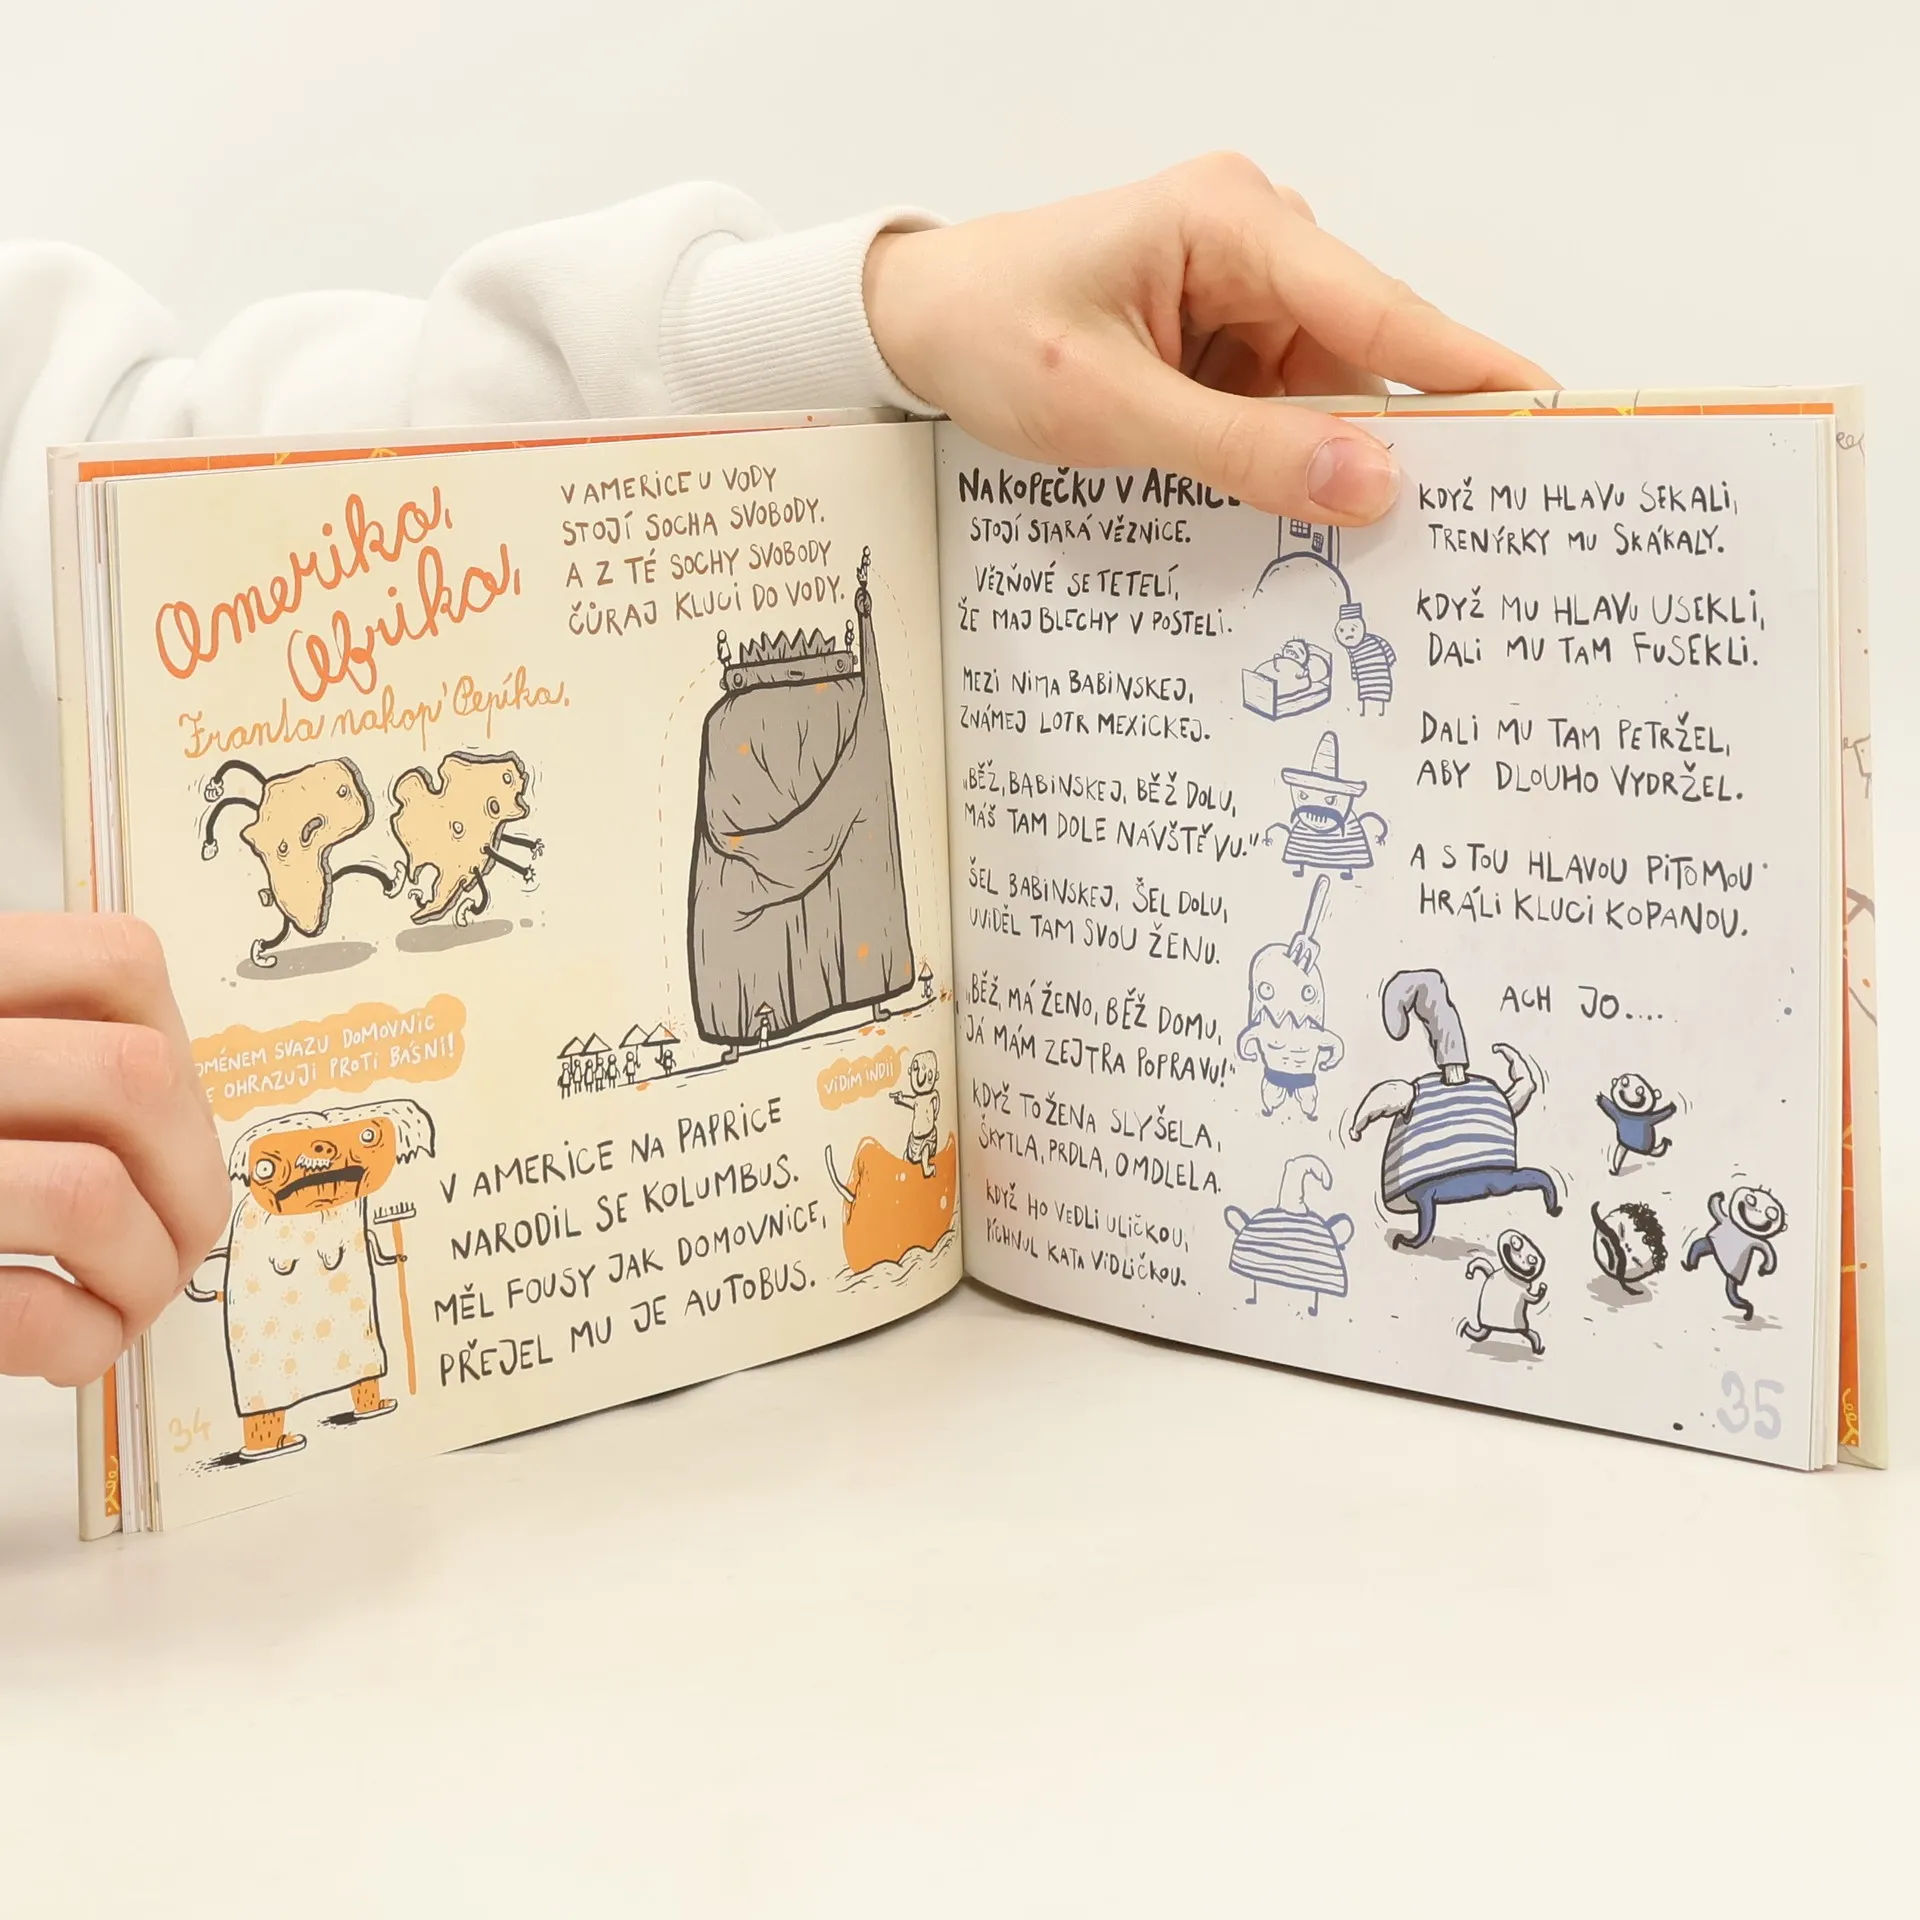 Amerika,
Afrika,
Franta nakop' Pepíka.
V AMERICE U VODY
STOJÍ SOCHA SVOBODY.
A Z TÉ SOCHY SVOBODY
ČŮRAJ KLUCI DO VODY.
SVAZU DOMOVNIC
OHRAZUJI PROTI BÁSNI!
VIDÍM INDII
V AMERICE NA PAPRICE
NARODIL SE KOLUMBUS.
MĚL FOUSY JAK DOMOVNICE,
PŘEJEL MU JE AUTOBUS.
34
NA KOPEČKU V AFRICE
STOJÍ STARÁ VĚZNICE.
VĚZŇOVÉ SE TETELÍ,
ŽE MAJ BLECHY V POSTELI.
MEZI NIMA BABINSKEJ,
ZNÁMEJ LOTR MEXICKEJ.
„BĚŽ, BABINSKEJ, BĚŽ DOLU,
MÁŠ TAM DOLE NÁVŠTĚVU."
ŠEL BABINSKEJ, ŠEL DOLU,
UVIDĚL TAM SVOU ŽENU.
„BĚŽ, MÁ ŽENO, BĚŽ DOMU,
JÁ MÁM ZEJTRA POPRAVU!"
KDYŽ TO ŽENA SLYŠELA,
ŠKYTLA, PRDLA, OMDLELA.
KDYŽ HO VEDLI ULIČKOU,
PÍCHNUL KATA VIDLIČKOU.
KDYŽ MU HLAVU SEKALI,
TRENÝRKY MU SKÁKALY.
KDYŽ MU HLAVU USEKLI,
DALI MU TAM FUSEKLI.
DALI MU TAM PETRŽEL,
ABY DLOUHO VYDRŽEL.
A S TOU HLAVOU PITOMOU
HRÁLI KLUCI KOPANOU.
ACH JO....
35